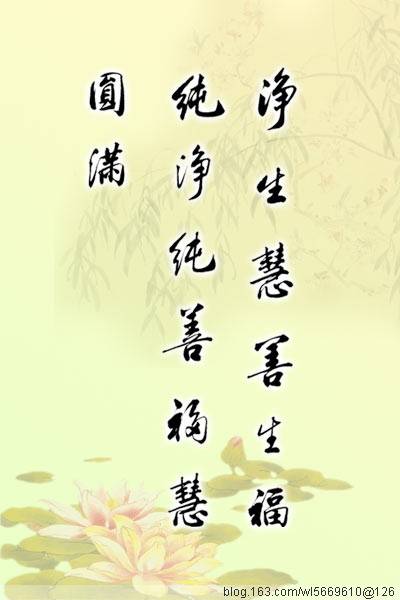 净生慧善生福
纯净纯善福慧
圓满
blog.163.com/wl5669610@126